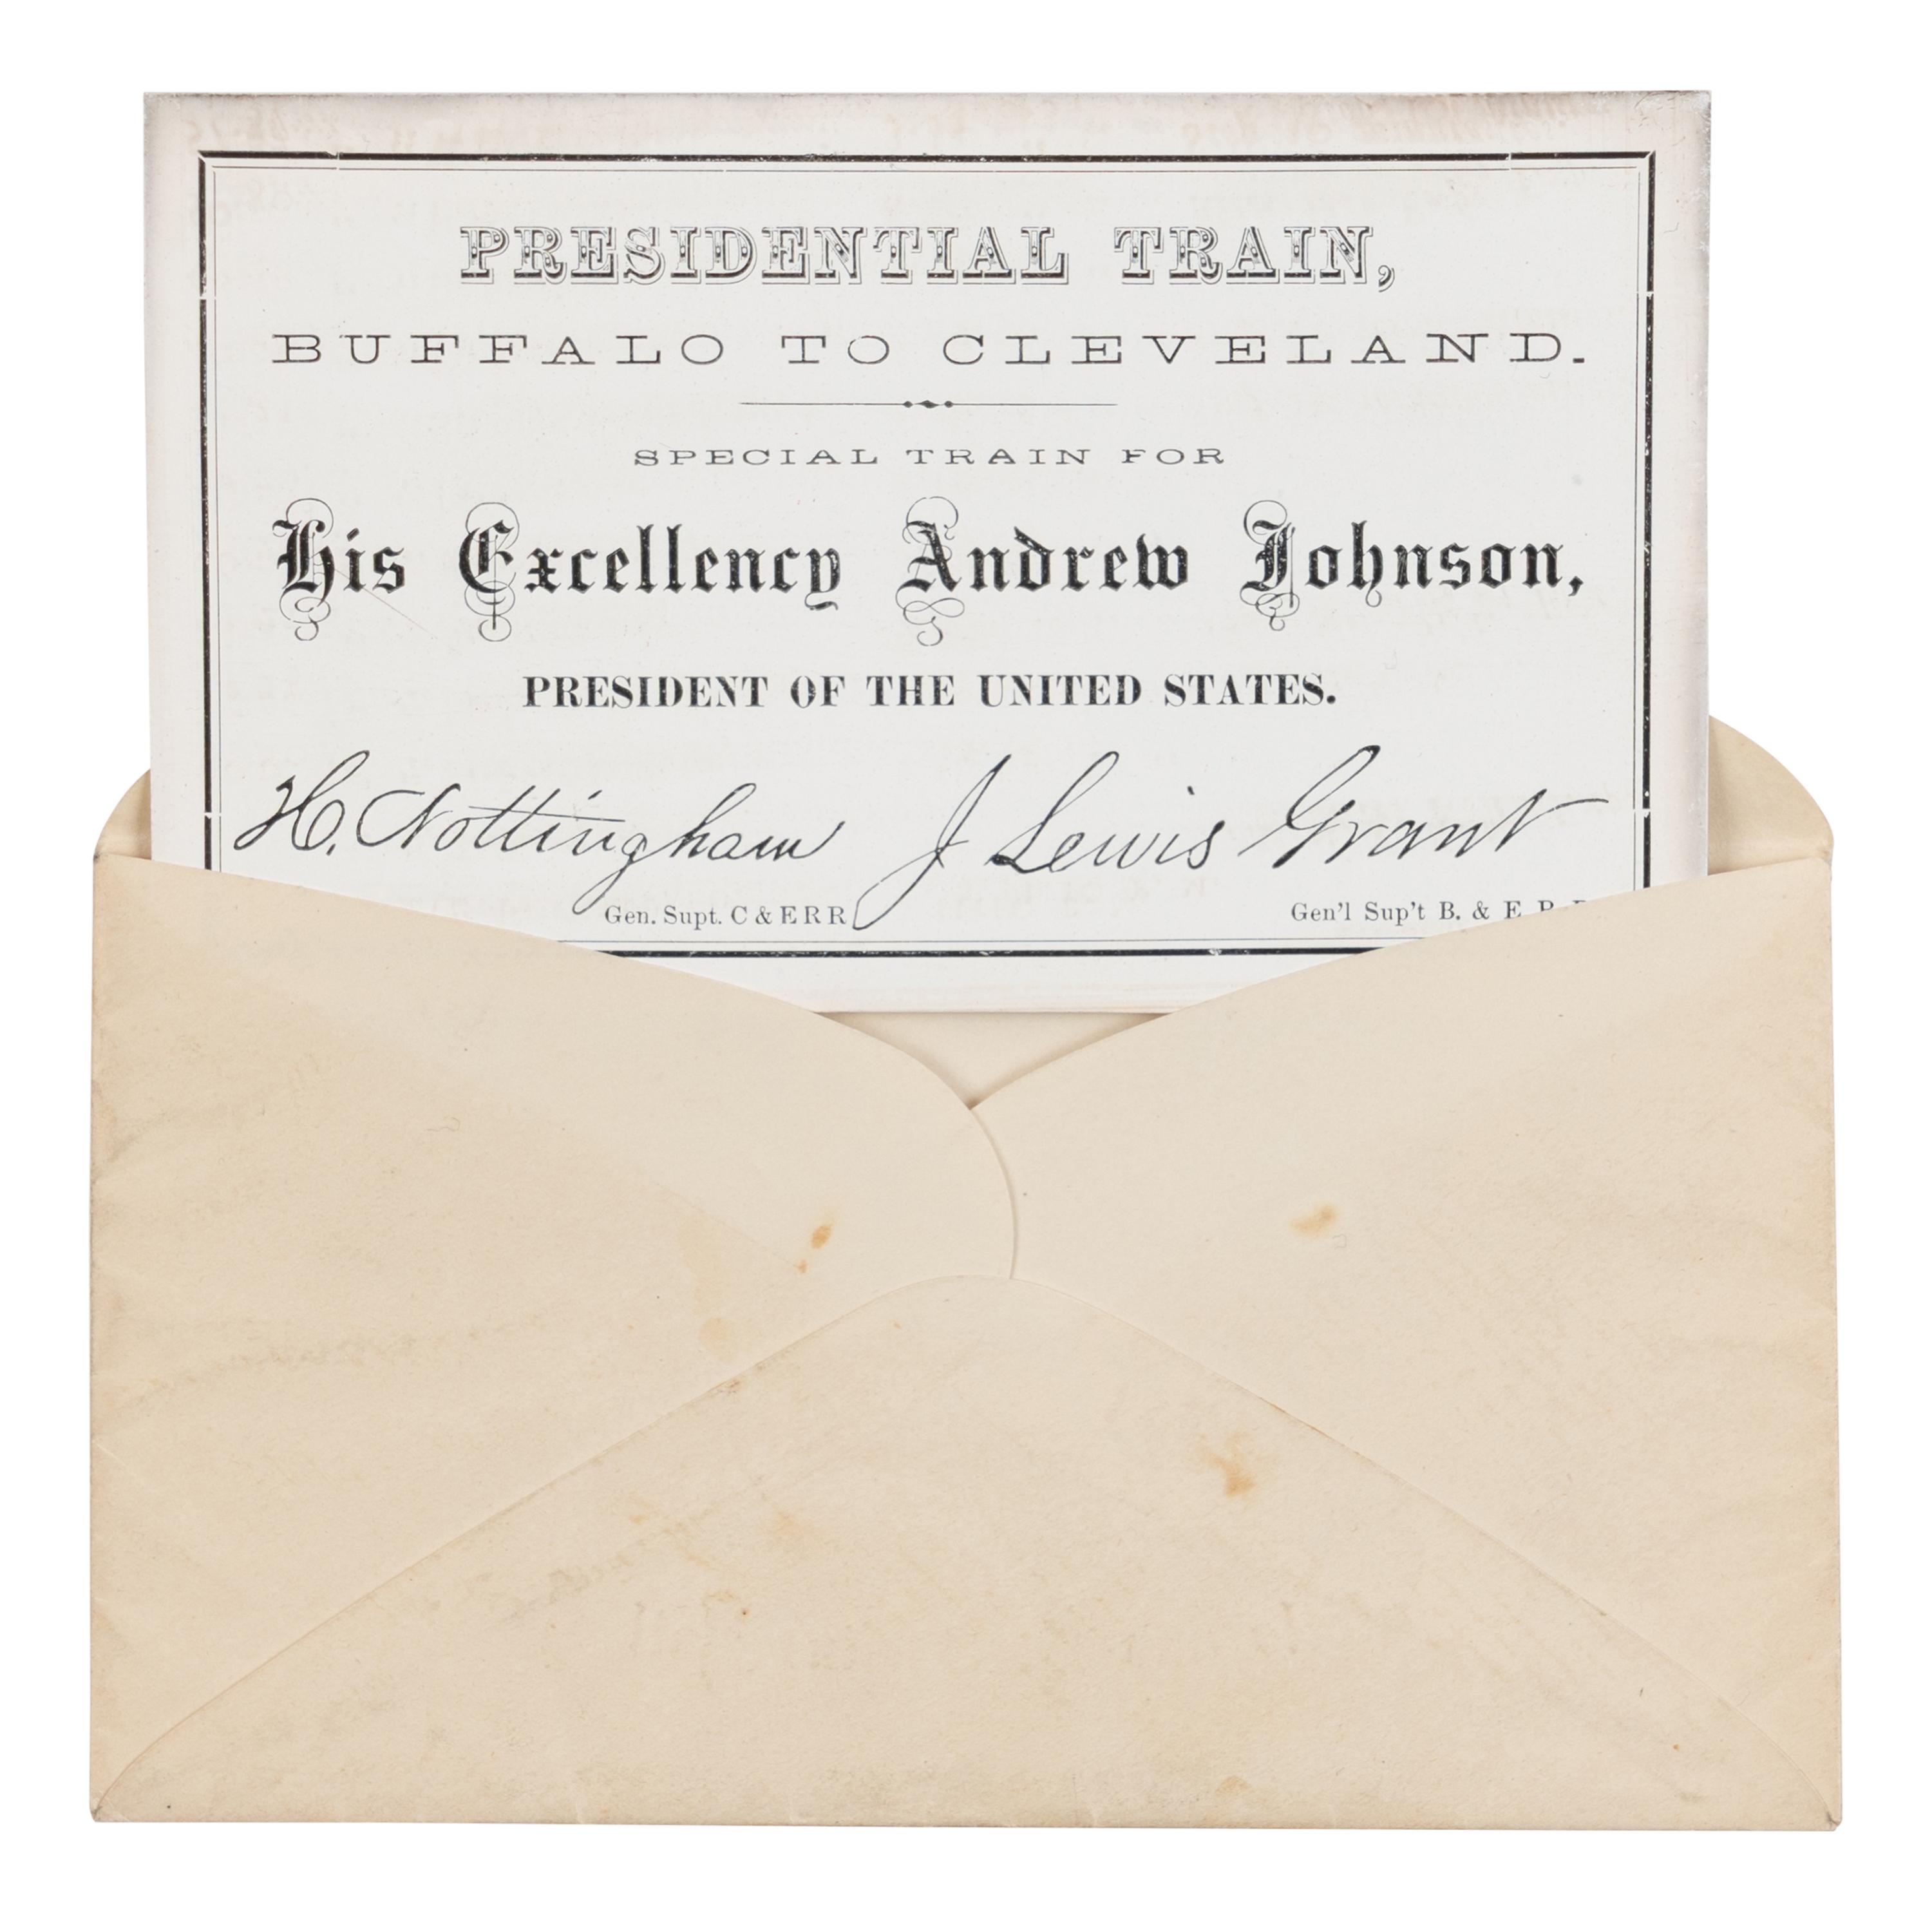 PRESIDENTIAL TRAIN,
BUFFALO TO CLEVELAND.
SPECIAL TRAIN FOR
His Excellency Andrew Johnson,
PRESIDENT OF THE UNITED STATES.
H. Nottingham J Lewis Grant
Gen. Supt. C & E R R Gen'l Sup't B. & E. R. R.